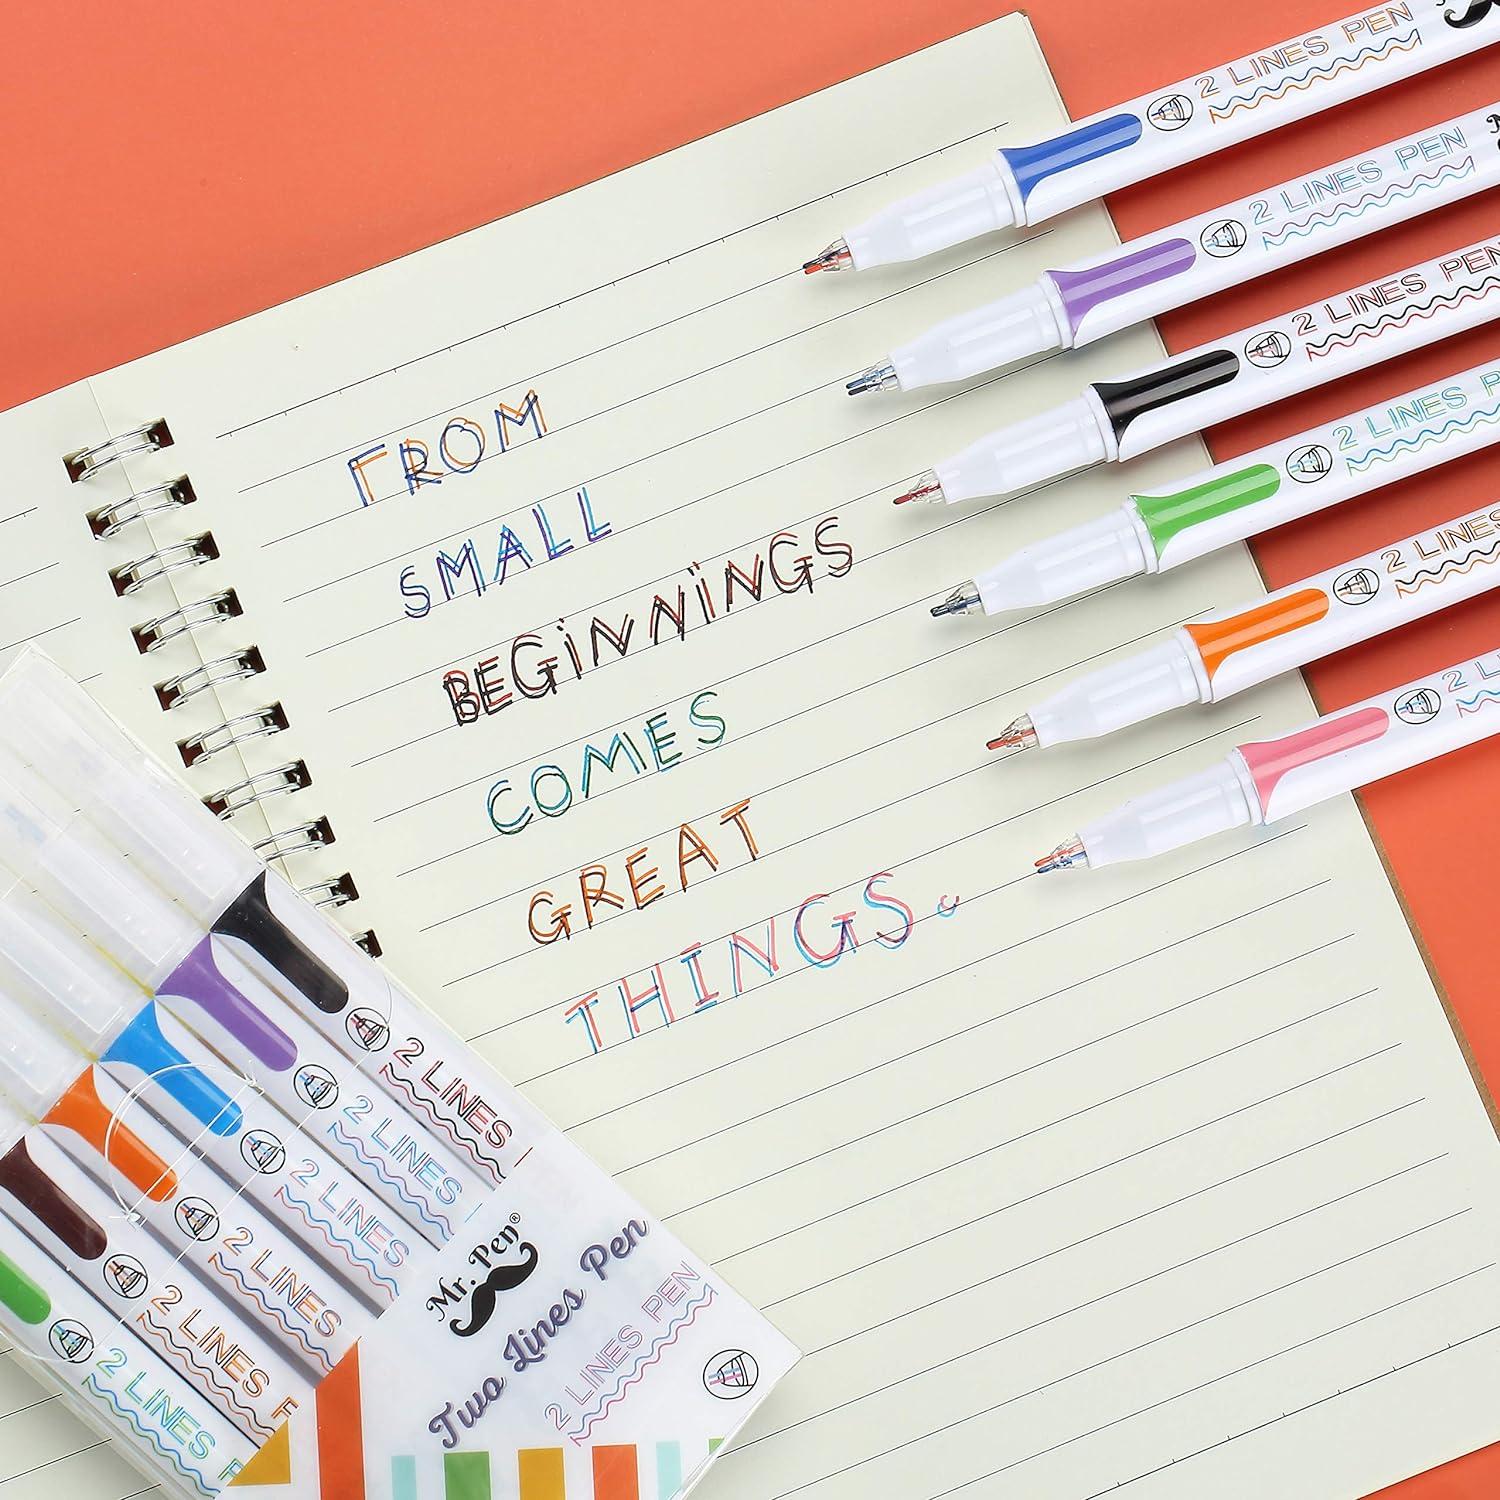 2 LINES PEN
2 LINES PEN
2 LINES PEN
2 LINES P
2 LINES
2 L
FROM
SMALL
BEGINNINGS
COMES
GREAT
THINGS.
2 LINES
2 LINES
2 LINES
2 LINES
2 LINES P
2 LINES P
Mr. Pen®
Two Lines Pen
2 LINES PEN